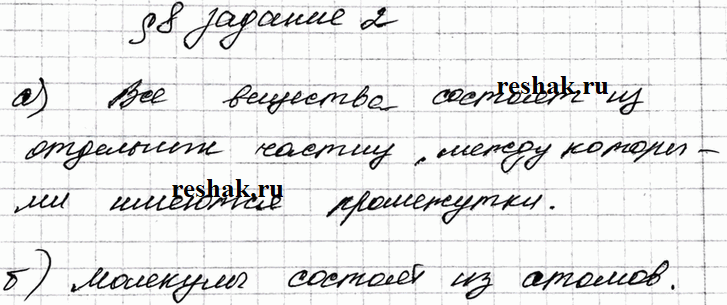 §8 задание 2
а) Все вещества состоят из
отдельных частиц, между которы-
ми имеются промежутки.
б) молекулы состоят из атомов.
reshak.ru
reshak.ru